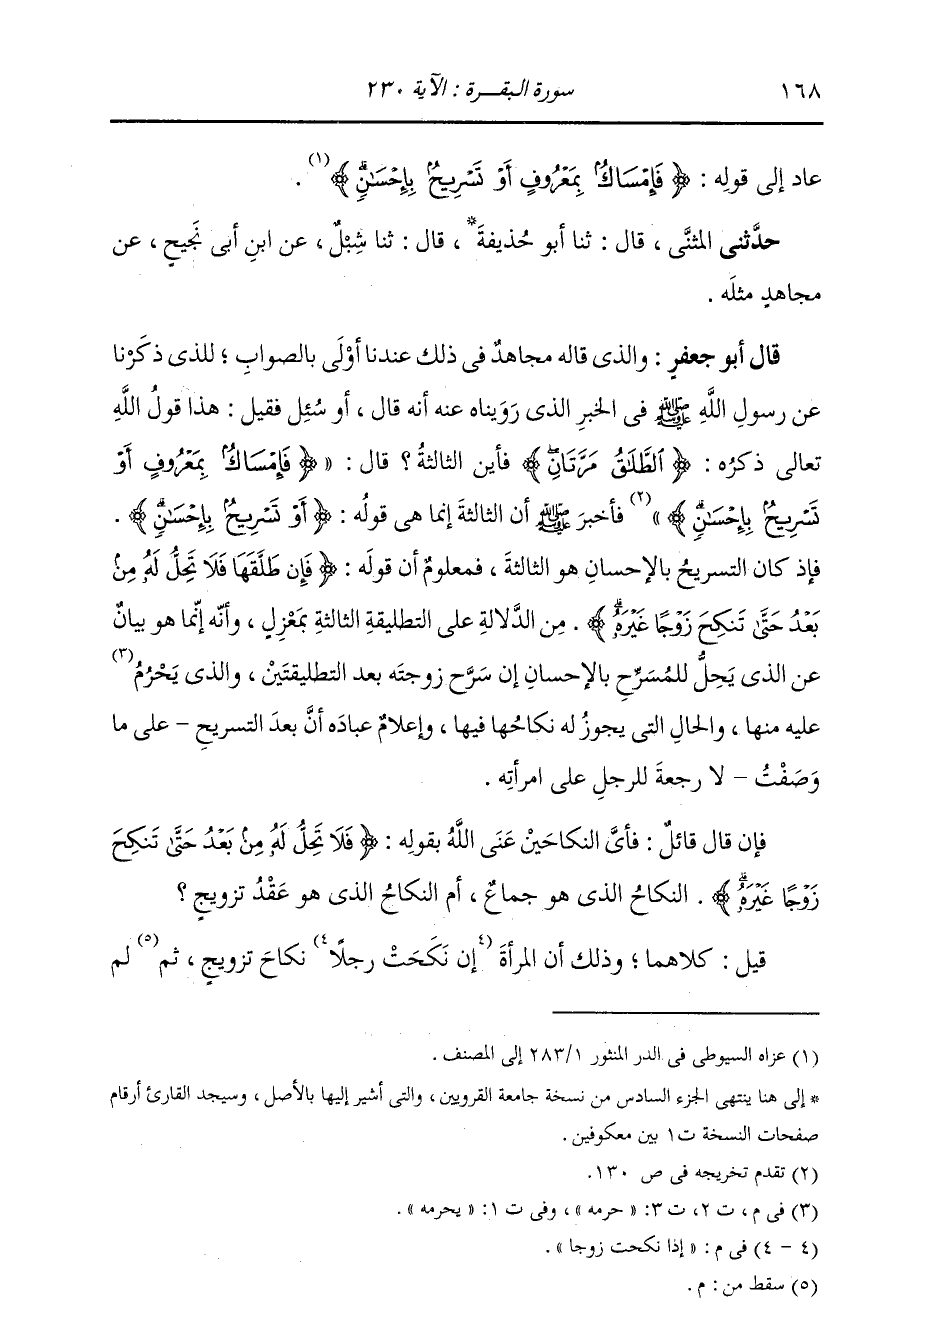 ١٦٨ سورة البقرة : الآية ٢٣٠
عاد إلى قولِه : ﴿ فَإِمْسَاكٌ بِمَعْرُوفٍ أَوْ تَسْرِيحٌ بِإِحْسَانٍ ﴾(١) .
حدَّثنى المثنَّى ، قال : ثنا أبو حُذيفةَ* ، قال : ثنا شِبْلٌ ، عن ابنِ أبى نَجيحٍ ، عن
مجاهدٍ مثلَه .
قال أبو جعفرٍ : والذى قاله مجاهدٌ فى ذلك عندنا أوْلَى بالصوابِ ؛ للذى ذكَرْنا
عن رسولِ اللَّهِ ﷺ فى الخبرِ الذى رَوَيناه عنه أنه قال ، أو سُئِل فقيل : هذا قولُ اللَّهِ
تعالى ذكرُه : ﴿ ٱلطَّلَٰقُ مَرَّتَانِۖ ﴾ فأين الثالثةُ ؟ قال : « ﴿ فَإِمْسَاكٌ بِمَعْرُوفٍ أَوْ
تَسْرِيحٌ بِإِحْسَٰنٍۗ ﴾ »(٢) فأخبرَ ﷺ أن الثالثةَ إنما هى قولُه : ﴿ أَوْ تَسْرِيحٌ بِإِحْسَٰنٍۗ ﴾ .
فإذ كان التسريحُ بالإحسانِ هو الثالثةَ ، فمعلومٌ أن قولَه : ﴿ فَإِن طَلَّقَهَا فَلَا تَحِلُّ لَهُۥ مِنۢ
بَعْدُ حَتَّىٰ تَنكِحَ زَوْجًا غَيْرَهُۥۗ ﴾ . مِن الدَّلالةِ على التطليقةِ الثالثةِ بمَعْزِلٍ ، وأنَّه إنَّما هو بيانٌ
عن الذى يَحِلُّ للمُسَرِّحِ بالإحسانِ إن سَرَّح زوجتَه بعد التطليقتَيْن ، والذى يَحْرُمُ(٣)
عليه منها ، والحالِ التى يجوزُ له نكاحُها فيها ، وإعلامُ عبادَه أنَّ بعدَ التسريحِ – على ما
وَصَفْتُ – لا رجعةَ للرجلِ على امرأتِه .
فإن قال قائلٌ : فأىَّ النكاحَيْن عَنَى اللَّهُ بقولِه : ﴿ فَلَا تَحِلُّ لَهُۥ مِنۢ بَعْدُ حَتَّىٰ تَنكِحَ
زَوْجًا غَيْرَهُۥۗ ﴾ . النكاحُ الذى هو جماعٌ ، أم النكاحُ الذى هو عَقْدُ تزويجٍ ؟
قيل : كلاهما ؛ وذلك أن المرأةَ (٤إن نَكَحَتْ رجلًا٤) نكاحَ تزويجٍ ، ثم(٥) لم
(١) عزاه السيوطى فى الدر المنثور ٢٨٣/١ إلى المصنف .
* إلى هنا ينتهى الجزء السادس من نسخة جامعة القرويين ، والتى أشير إليها بالأصل ، وسيجد القارئ أرقام
صفحات النسخة ت١ بين معكوفين .
(٢) تقدم تخريجه فى ص ١٣٠.
(٣) فى م ، ت ٢، ت ٣: « حرمه » ، وفى ت ١: « يحرمه » .
(٤ – ٤) فى م : « إذا نكحت زوجا » .
(٥) سقط من : م .